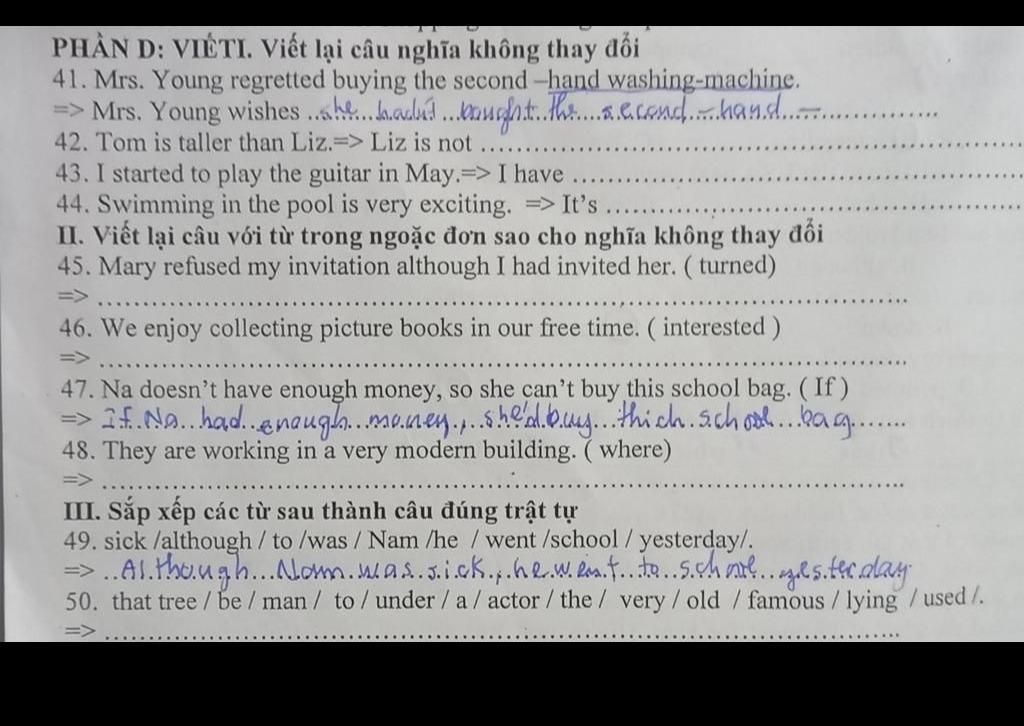 PHẦN D: VIẾTI. Viết lại câu nghĩa không thay đổi
41. Mrs. Young regretted buying the second –hand washing-machine.
=> Mrs. Young wishes ..she...hadn't...bought..the....second..-..hand...-...............
42. Tom is taller than Liz.=> Liz is not ..........................................................
43. I started to play the guitar in May.=> I have ................................................
44. Swimming in the pool is very exciting. => It's .............................................
II. Viết lại câu với từ trong ngoặc đơn sao cho nghĩa không thay đổi
45. Mary refused my invitation although I had invited her. ( turned)
=> ..............................................................................................
46. We enjoy collecting picture books in our free time. ( interested )
=> ..............................................................................................
47. Na doesn't have enough money, so she can't buy this school bag. ( If )
=> If..Na...had...enough...money.,..she'd.buy...thich.school...bag.......
48. They are working in a very modern building. ( where)
=> ..............................................................................................
III. Sắp xếp các từ sau thành câu đúng trật tự
49. sick /although / to /was / Nam /he / went /school / yesterday/.
=> ..Although...Nam.was.sick.,.he.went..to..school...yesterday
50. that tree / be / man / to / under / a / actor / the / very / old / famous / lying / used /.
=> ..............................................................................................